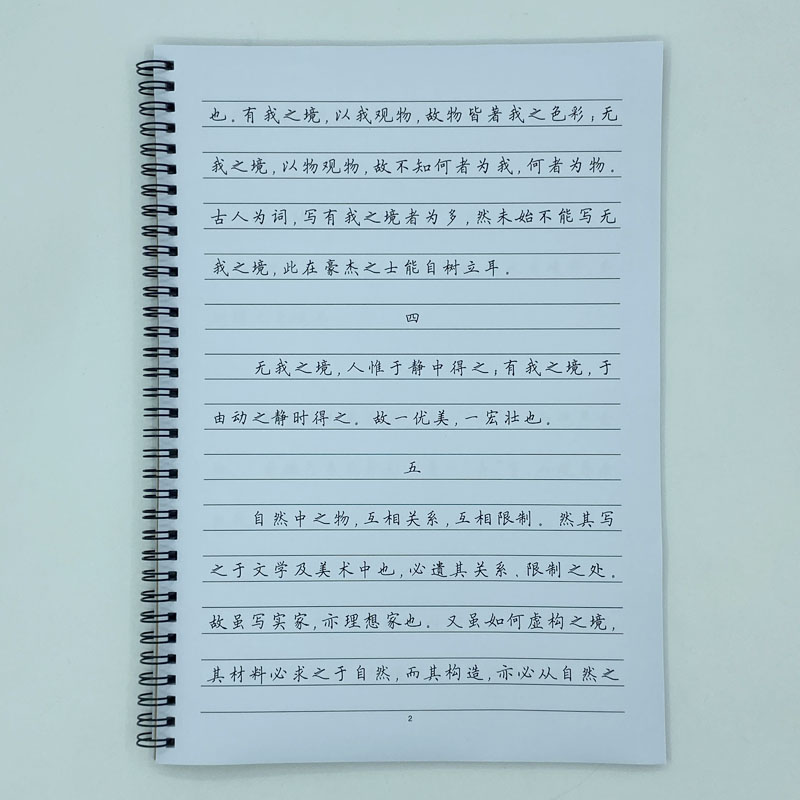 也.有我之境,以我观物,故物皆著我之色彩;无
我之境,以物观物,故不知何者为我,何者为物.
古人为词,写有我之境者为多,然未始不能写无
我之境,此在豪杰之士能自树立耳.
四
无我之境,人惟于静中得之;有我之境,于
由动之静时得之.故一优美,一宏壮也.
五
自然中之物,互相关系,互相限制.然其写
之于文学及美术中也,必遗其关系、限制之处.
故虽写实家,亦理想家也.又虽如何虚构之境,
其材料必求之于自然,而其构造,亦必从自然之
2